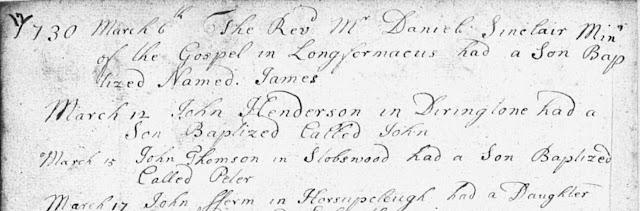 1730 March 6th The Revd Mr Daniel Sinclair Minr
of the Gospel in Longformacus had a Son Bap
tized Named James
March 12 John Henderson in Diringtone had a
Son Baptized Called John
March 15 John Thomson in Stobswood had a Son Baptized
Called Peter
March 17 John fferm in Horsupcleugh had a Daughter